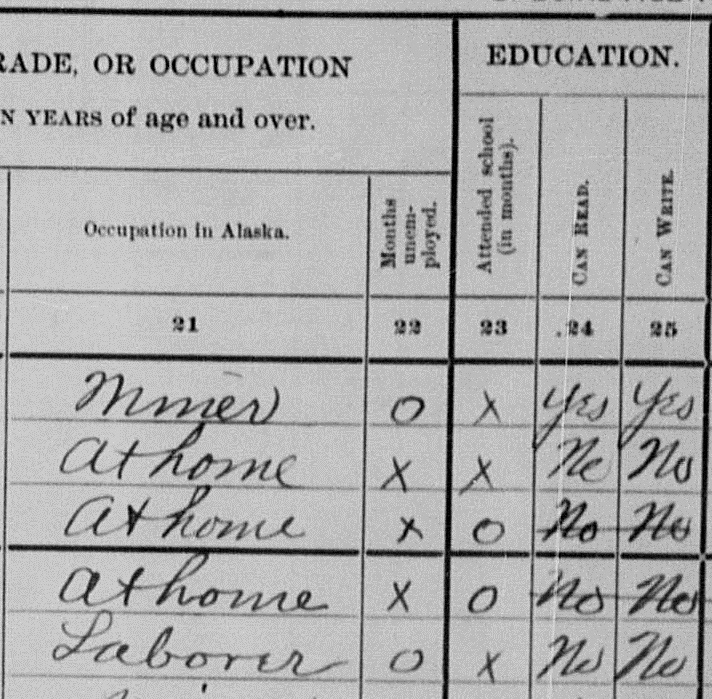 RADE, OR OCCUPATION
N YEARS of age and over.
EDUCATION.
Occupation in Alaska.
Months unem-
ployed.
Attended school
(in months).
CAN READ.
CAN WRITE.
21 22 23 24 25
Miner O X Yes Yes
At home X X No No
At home X O No No
At home X O No No
Laborer O X No No